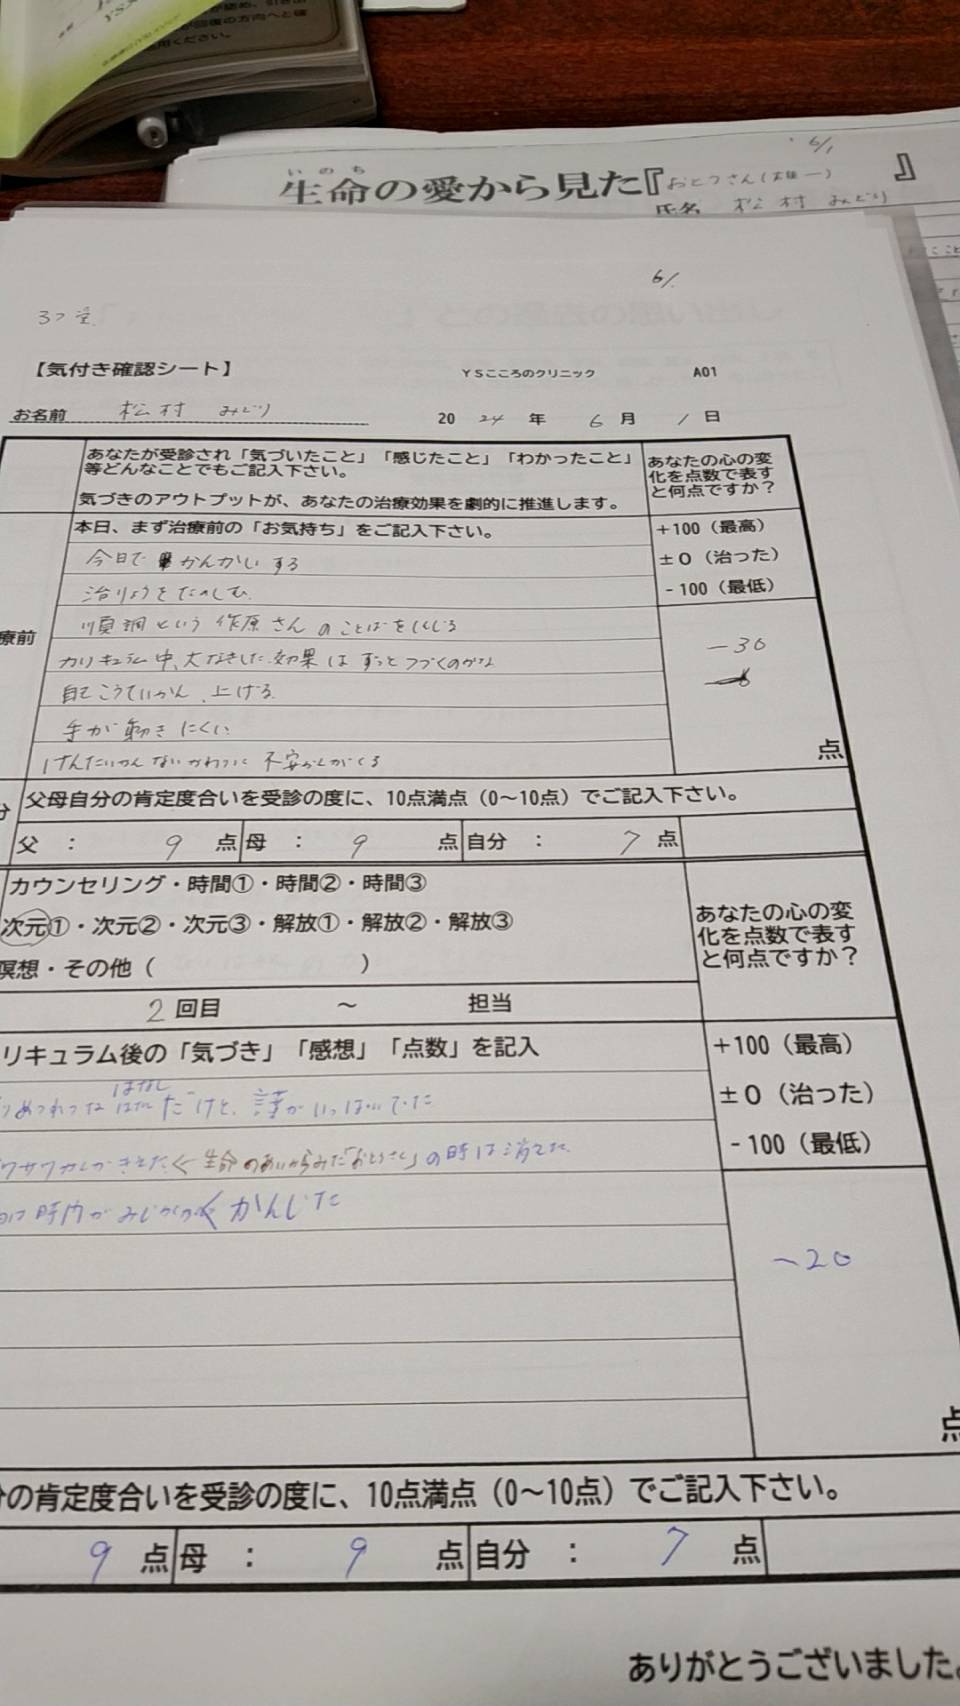 YSS
回復の方向へと確
用ください。
6/1
いのち
生命の愛から見た『おとうさん(雄一)』
氏名 松村 みどり
6/1
3つ
【気付き確認シート】 YSこころのクリニック A01
お名前 松村 みどり 2024年 6月 1日
あなたが受診され「気づいたこと」「感じたこと」「わかったこと」
等どんなことでもご記入下さい。
気づきのアウトプットが、あなたの治療効果を劇的に推進します。
あなたの心の変
化を点数で表す
と何点ですか？
本日、まず治療前の「お気持ち」をご記入下さい。
+100（最高）
±0（治った）
-100（最低）
療前
今日で かんかいする
治りょうをたのしむ
順調という 作原さんのことばをしんじる
カリキュラム中、大なきした効果はずっとつづくのかな
自こうていかん、上げる
手が動きにくい
けんたいかんないかわりに 不安かんがくる
-30
点
分
父母自分の肯定度合いを受診の度に、10点満点（0～10点）でご記入下さい。
父 ： 9 点 母 ： 9 点 自分 ： 7 点
カウンセリング・時間①・時間②・時間③
次元①・次元②・次元③・解放①・解放②・解放③
瞑想・その他（ ）
あなたの心の変
化を点数で表す
と何点ですか？
2回目 ～ 担当
リキュラム後の「気づき」「感想」「点数」を記入
+100（最高）
±0（治った）
-100（最低）
はなし
だけと、涙がいっぱいでた
ワサワかんがきえた←生命のあいからみた「おとうさん」の時は消えた
時内がみじかくかんじた
-20
点
分の肯定度合いを受診の度に、10点満点（0～10点）でご記入下さい。
9 点 母 ： 9 点 自分 ： 7 点
ありがとうございました。